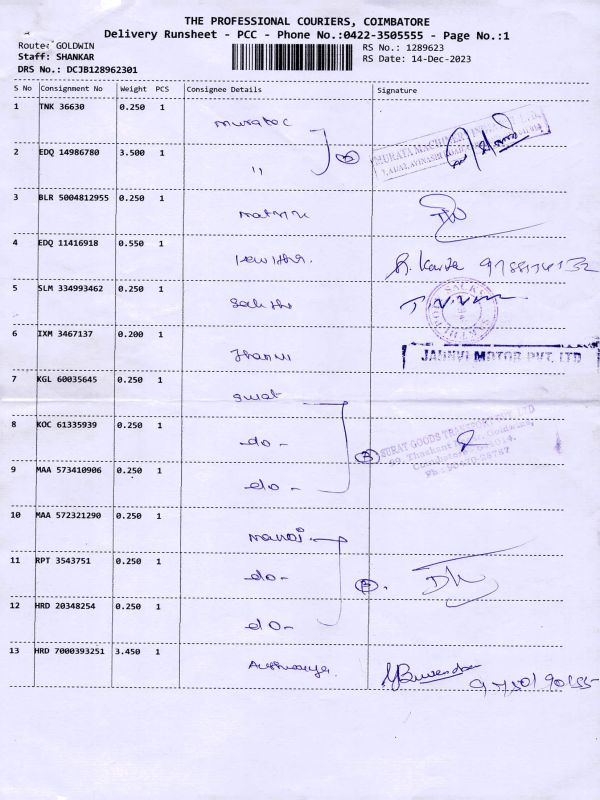 THE PROFESSIONAL COURIERS, COIMBATORE
Delivery Runsheet - PCC - Phone No.:0422-3505555 - Page No.:1
Route: GOLDWIN
RS No.: 1289623
Staff: SHANKAR
RS Date: 14-Dec-2023
DRS No.: DCJB128962301
S No Consignment No Weight PCS Consignee Details Signature
1 TNK 36630 0.250 1
2 EDQ 14986780 3.500 1 "
3 BLR 5004812955 0.250 1
4 EDQ 11416918 0.550 1
5 SLM 334993462 0.250 1
6 IXM 3467137 0.200 1
JAHNVI MOTOR PVT. LTD
7 KGL 60035645 0.250 1 Surat
8 KOC 61335939 0.250 1 -do-
SURAT GOODS TRANSPORT PVT. LTD
9 MAA 573410906 0.250 1 -do-
10 MAA 572321290 0.250 1 Manoj
11 RPT 3543751 0.250 1 -do-
12 HRD 20348254 0.250 1 -do-
13 HRD 7000393251 3.450 1